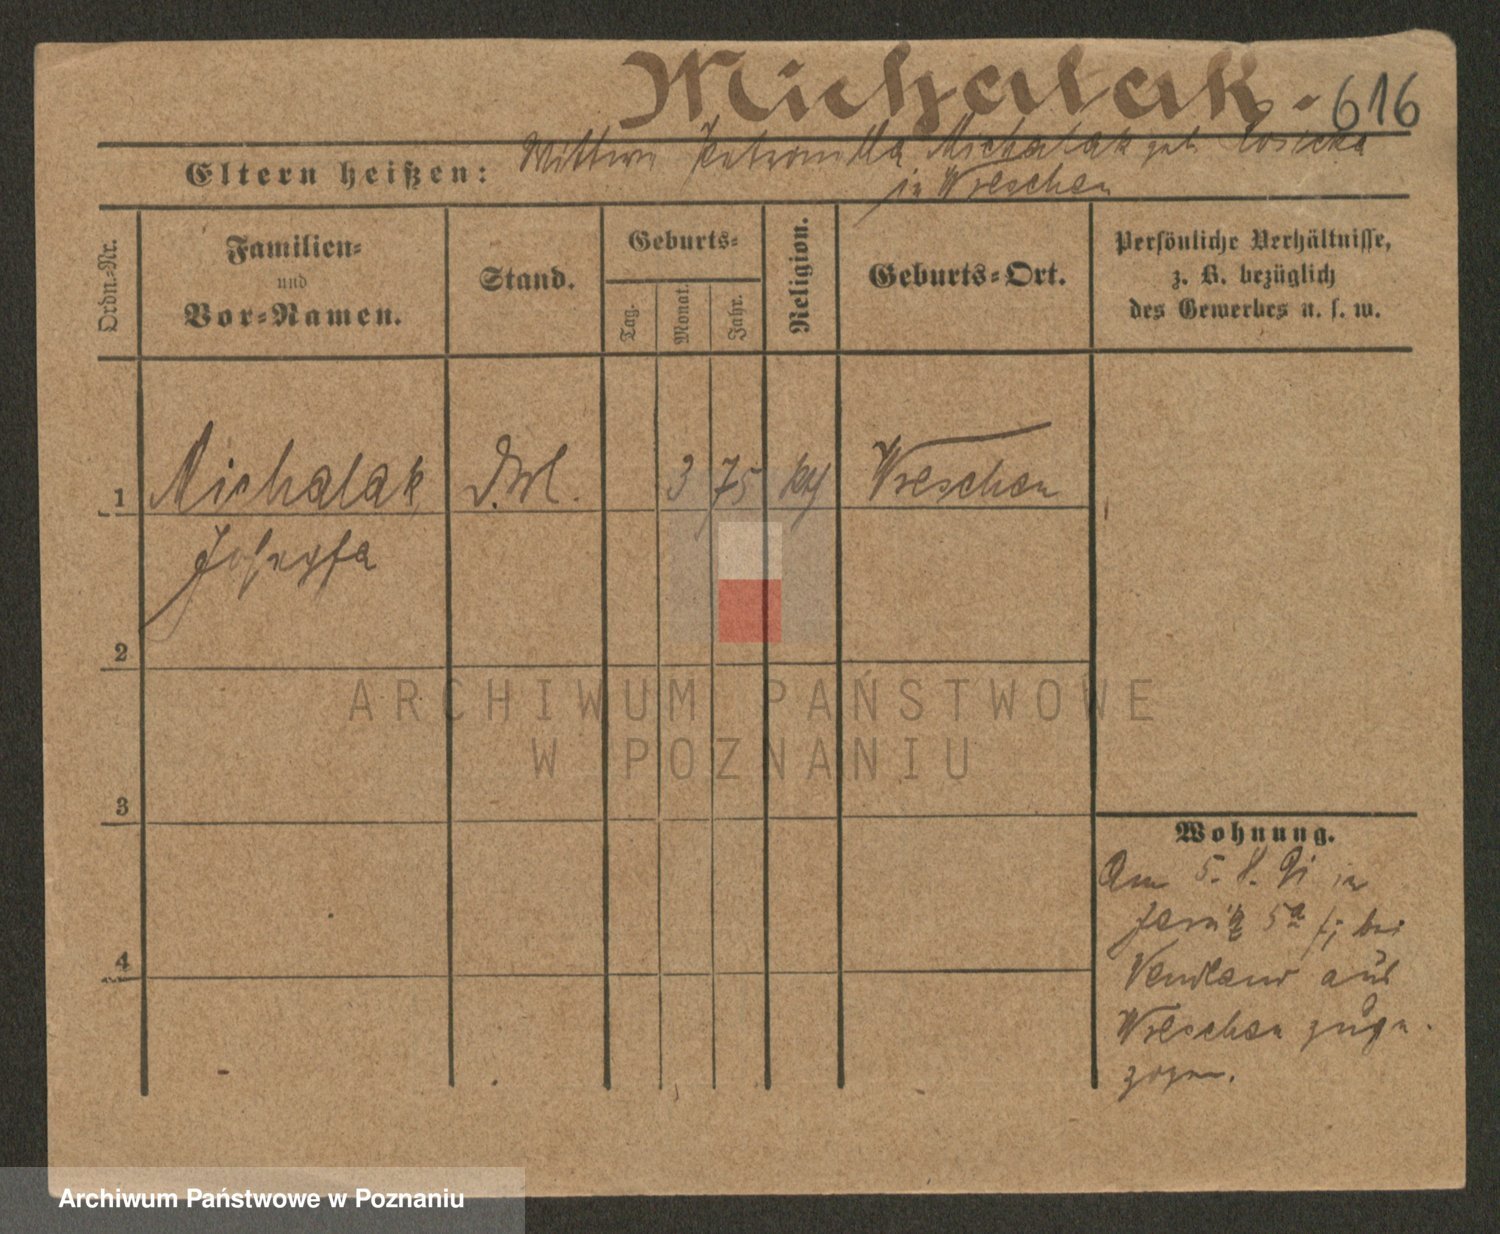 Michalak. 616
Eltern heißen: Wittwe Petronella Michalak geb. Cosicka
in Wreschen
Ordn.-Nr.
Familien-
und
Vor-Namen.
Stand.
Geburts-
Tag.
Monat.
Jahr.
Religion.
Geburts-Ort.
Persönliche Verhältnisse,
z. B. bezüglich
des Gewerbes u. s. w.
1 Michalak 3 75 Wreschen
Josepfa
2
3
4
Wohnung.
Am 5. 8. 91 in
5a bei
aus
Wreschen zuge-
zogen.
ARCHIWUM PAŃSTWOWE
W POZNANIU
Archiwum Państwowe w Poznaniu